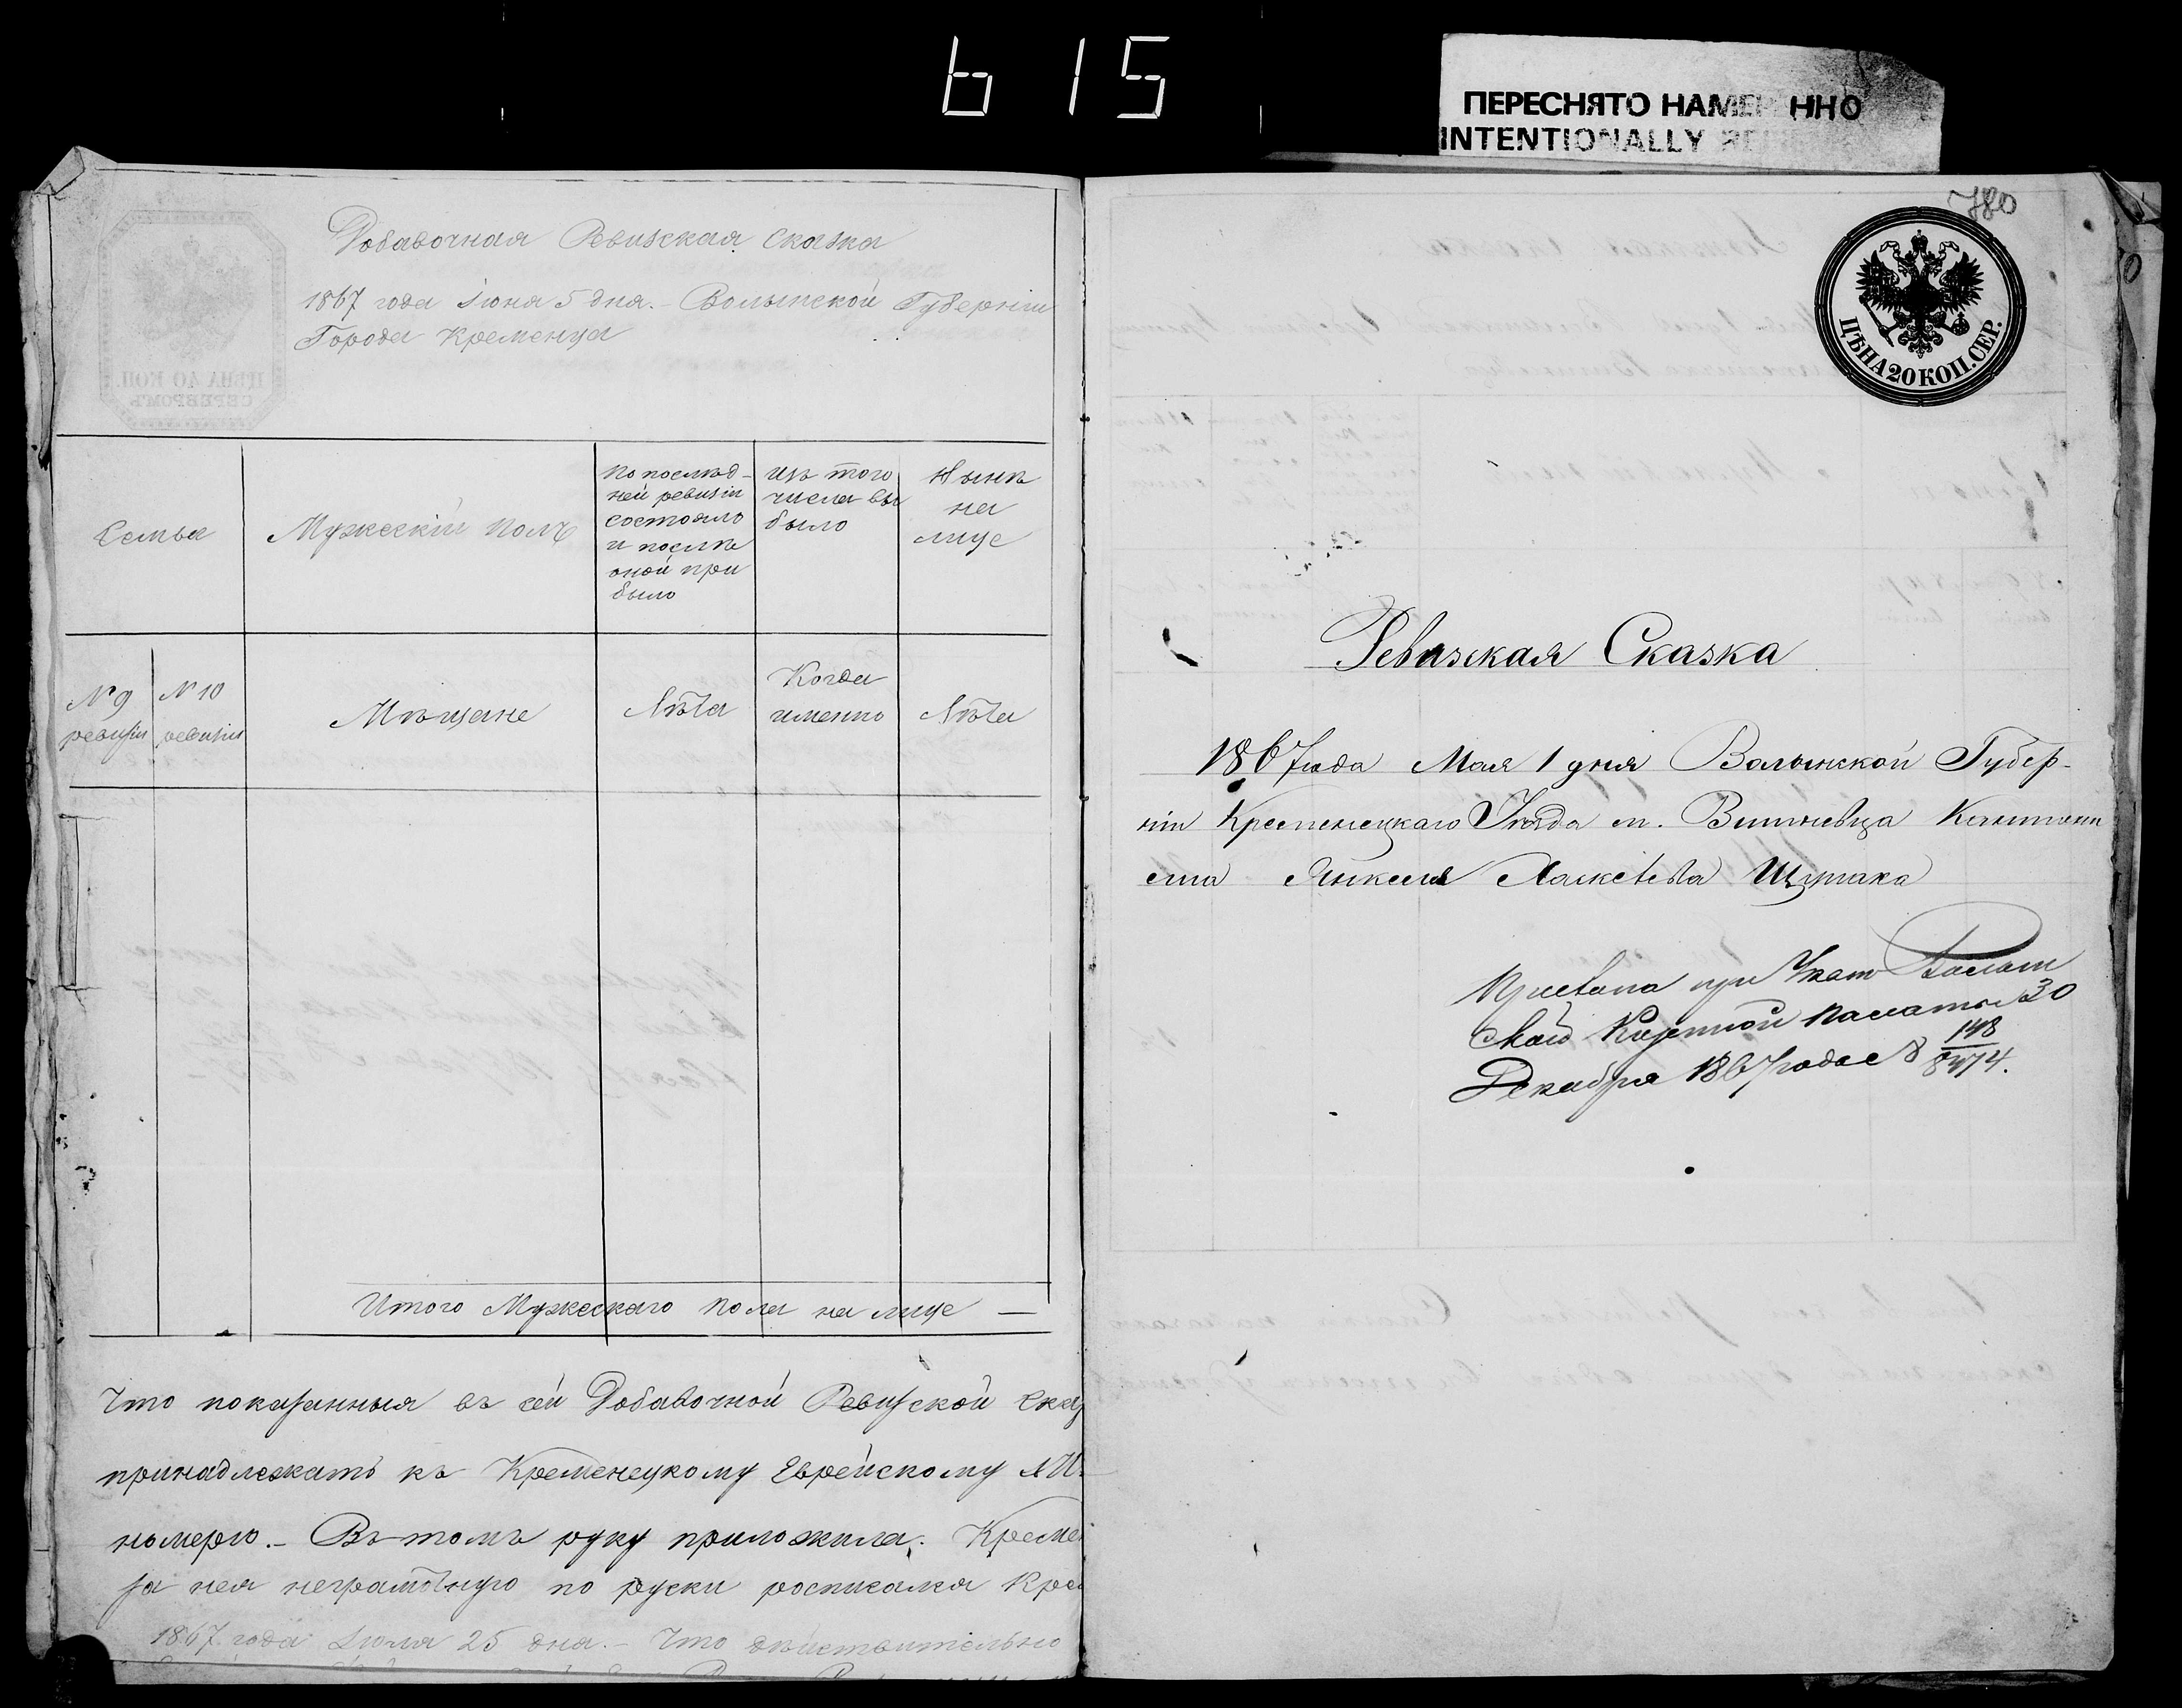 615
ПЕРЕСНЯТО НАМЕР ННО
INTENTIONALLY
Добавочная Ревизская сказка
1867 года Іюня 5 дня. – Волынской Губерніи
Города Кременца
ЦѢНА 40 КОП.
СЕРЕБРОМЪ
Семьи
Мужескій полъ
По послѣд-
ней ревизіи
состояло
и послѣ
оной при
было
изъ того
числа вы
было
Нынѣ
на
лице
№ 9
ревизіи
№ 10
ревизіи
Мѣщане
Лѣта
Когда
именно
Лѣта
Итого Мужескаго пола на лице —
Что показанныя въ сей Добавочной Ревизской сказ
принадлежатъ къ Кременецкому Еврейскому
номеръ. – Въ томъ руку приложила. Креме
за нея неграмотную по руски росписался Кре
1867 года Іюля 25 дня. – Что дѣйствительно
780
ЦѢНА 20 КОП. СЕР.
Ревизская Сказка
1867 года Мая 1 дня Волынской Губер-
ніи Кременецкаго Уѣзда м. Вишневца
Янкеля
при Указѣ Волын
ской Казенной Палаты 30
Декабря 1867 года
148
8474.